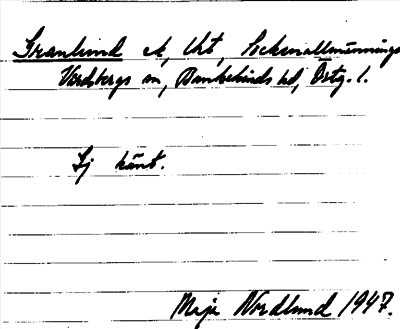 Granlund ä, Uht, Sockenallmännings
Vårdsbergs sn, Bankekinds hd, Östg. l.
Ej känt.
Maja Nordlund 1947.